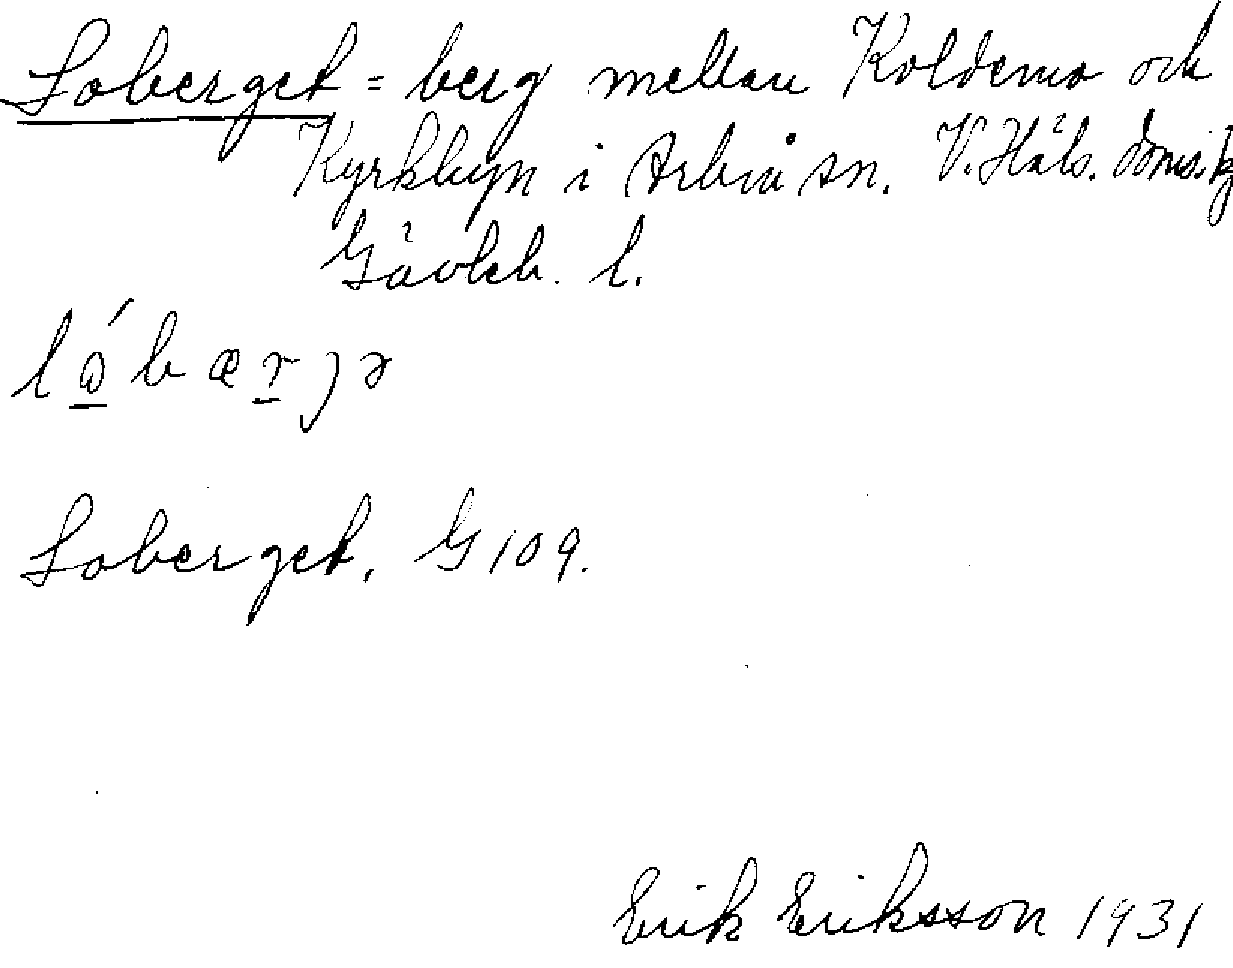 Loberget = berg mellan Koldemo och
Kyrkbyn i Arbrå sn. V. Häls. doms.
Gävleb. l.
Loberget, G 109.
Erik Eriksson 1931